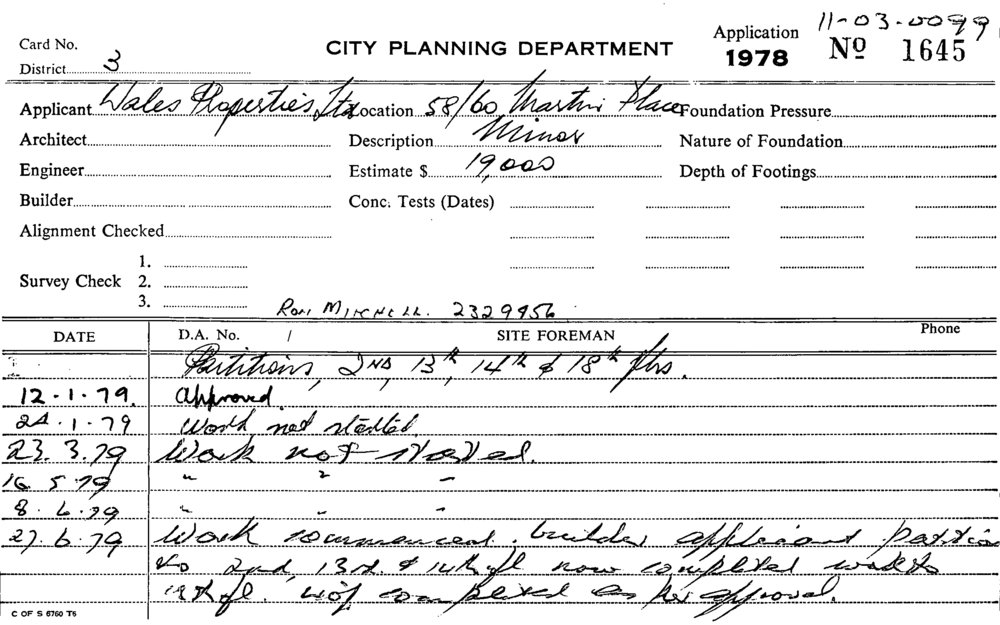 11-03-0099
Card No.
CITY PLANNING DEPARTMENT
Application
1978 Nº 1645
District 3
Applicant Wales Properties Ltd Location 58/60 Martin Place Foundation Pressure
Architect Description Minor Nature of Foundation
Engineer Estimate $ 19,000 Depth of Footings
Builder Conc. Tests (Dates)
Alignment Checked
1.
Survey Check 2.
3.
Ron Mitchell. 2329956
DATE D.A. No. / SITE FOREMAN Phone
Partitions, 2ND, 13th, 14th & 18th flrs.
12.1.79. Approved.
24.1.79 Work not started
23.3.79 Work not started.
16 5 79 " " -
8.6.79 " " -
27.6.79 Work commenced. builder applicant partition
to 2nd, 13th & 14th fl now completed work to
18th fl. completed as per approval.
C OF S 6760 T6